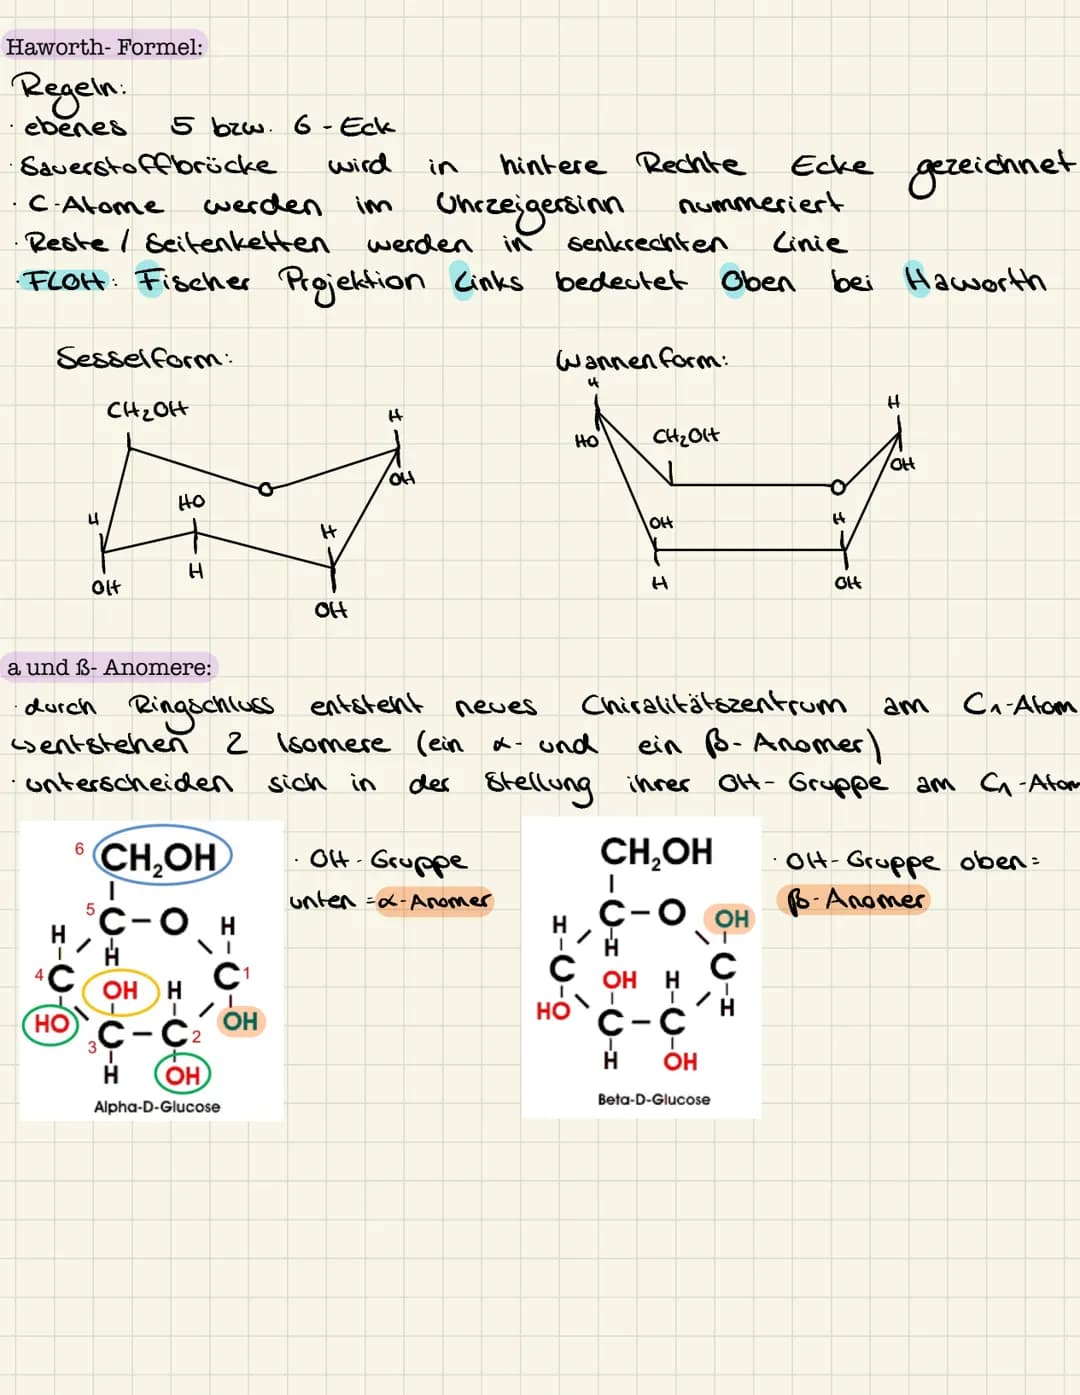 Haworth- Formel:
Regeln:
· ebenes 5 bzw. 6 - Eck
· Sauerstoffbrücke wird in hintere Rechte Ecke gezeichnet
· C-Atome werden im Uhrzeigersinn nummeriert
· Reste / Seitenketten werden in senkrechten Linie
· FLOH: Fischer Projektion Links bedeutet Oben bei Haworth
Sesselform: Wannenform:
CH₂OH H
HO
H H
OH
H
OH
OH
H H
HO CH₂OH
OH
OH H
H OH
a und ß- Anomere:
· durch Ringschluss entsteht neues Chiralitätszentrum am C₁-Atom
↳ entstehen 2 Isomere (ein α- und ein β- Anomer)
· unterscheiden sich in der Stellung ihrer OH- Gruppe am C₁-Atom
6 CH₂OH
5 C-O H
H H
4 C C 1
OH H
HO OH
3 C-C 2
H OH
Alpha-D-Glucose
· OH - Gruppe
unten = α-Anomer
CH₂OH
H C-O OH
H
C OH H C
HO H
C-C
H OH
Beta-D-Glucose
· OH- Gruppe oben =
β- Anomer